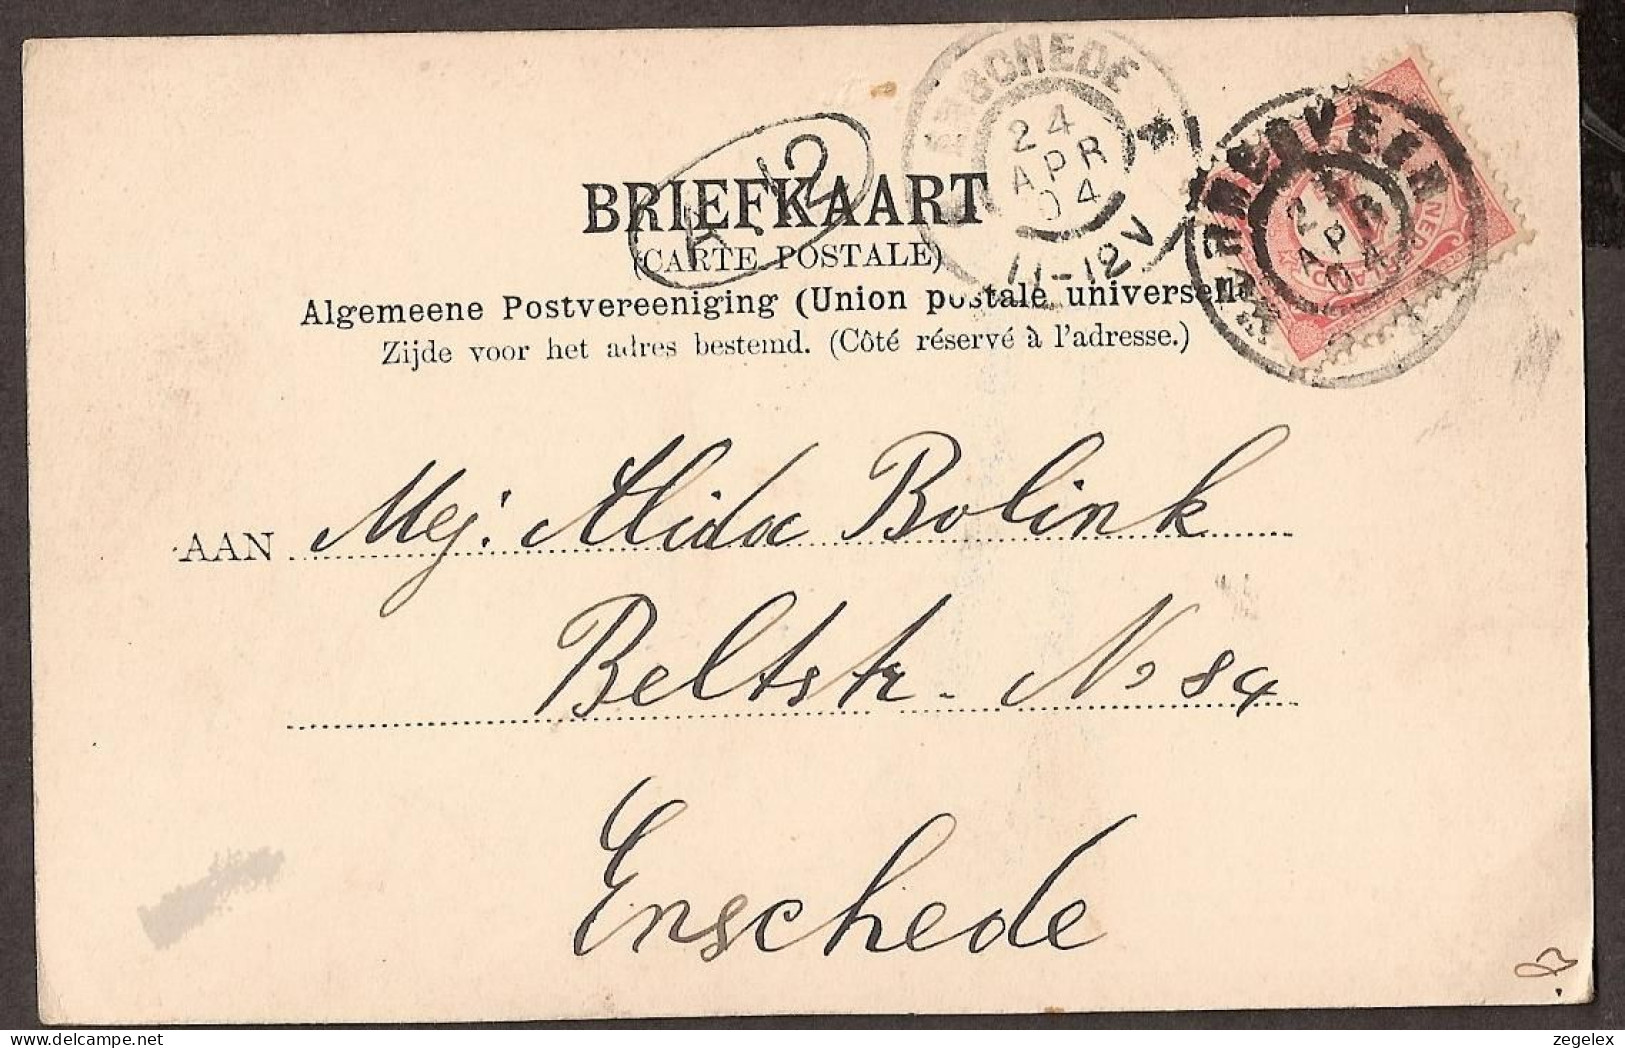 ENSCHEDE
24
APR
04
11-12V
K.12
HEERENVEEN
23
APR
04
NEDERLAND
BRIEFKAART
(CARTE POSTALE)
Algemeene Postvereeniging (Union postale universelle)
Zijde voor het adres bestemd. (Côté réservé à l'adresse.)
AAN Mej. Alida Bolink
Beltstr. No 84
Enschede
zegelex